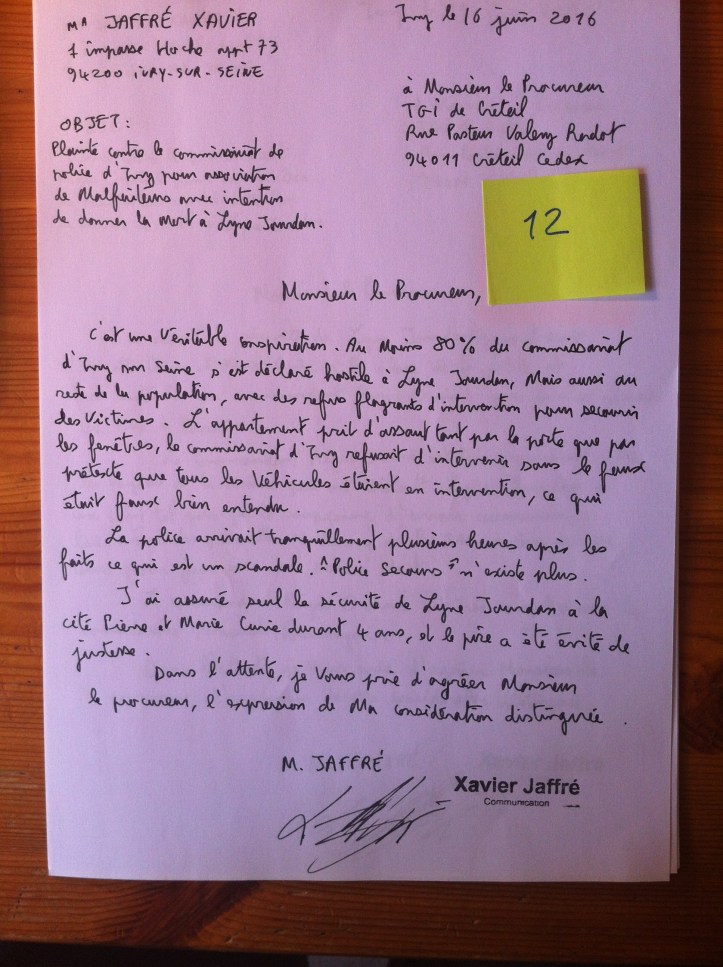 Mr JAFFRÉ XAVIER
1 impasse Hoche appt 73
94200 IVRY-SUR-SEINE
Ivry le 16 juin 2016
à Monsieur le Procureur
TGI de Créteil
Rue Pasteur Valery Radot
94011 Créteil Cedex
OBJET :
Plainte contre le commissariat de
police d'Ivry pour association
de Malfaiteurs avec intention
de donner la mort à Lyne Jourdan.
12
Monsieur le Procureur,
C'est une véritable conspiration. Au Moins 80% du commissariat
d'Ivry sur Seine s'est déclaré hostile à Lyne Jourdan, Mais aussi au
reste de la population, avec des refus flagrants d'intervention pour secourir
des victimes. L'appartement prit d'assaut tant par la porte que par
les fenêtres, le commissariat d'Ivry refusait d'intervenir sous le faux
prétexte que tous les véhicules étaient en intervention, ce qui
était faux bien entendu.
La police arrivait tranquillement plusieurs heures après les
faits ce qui est un scandale. "Police Secours" n'existe plus.
J'ai assuré seul la sécurité de Lyne Jourdan à la
cité Pierre et Marie Curie durant 4 ans, et le pire a été évité de
justesse.
Dans l'attente, je vous prie d'agréer Monsieur
le procureur, l'expression de Ma considération distinguée.
M. JAFFRÉ
Xavier Jaffré
Communication